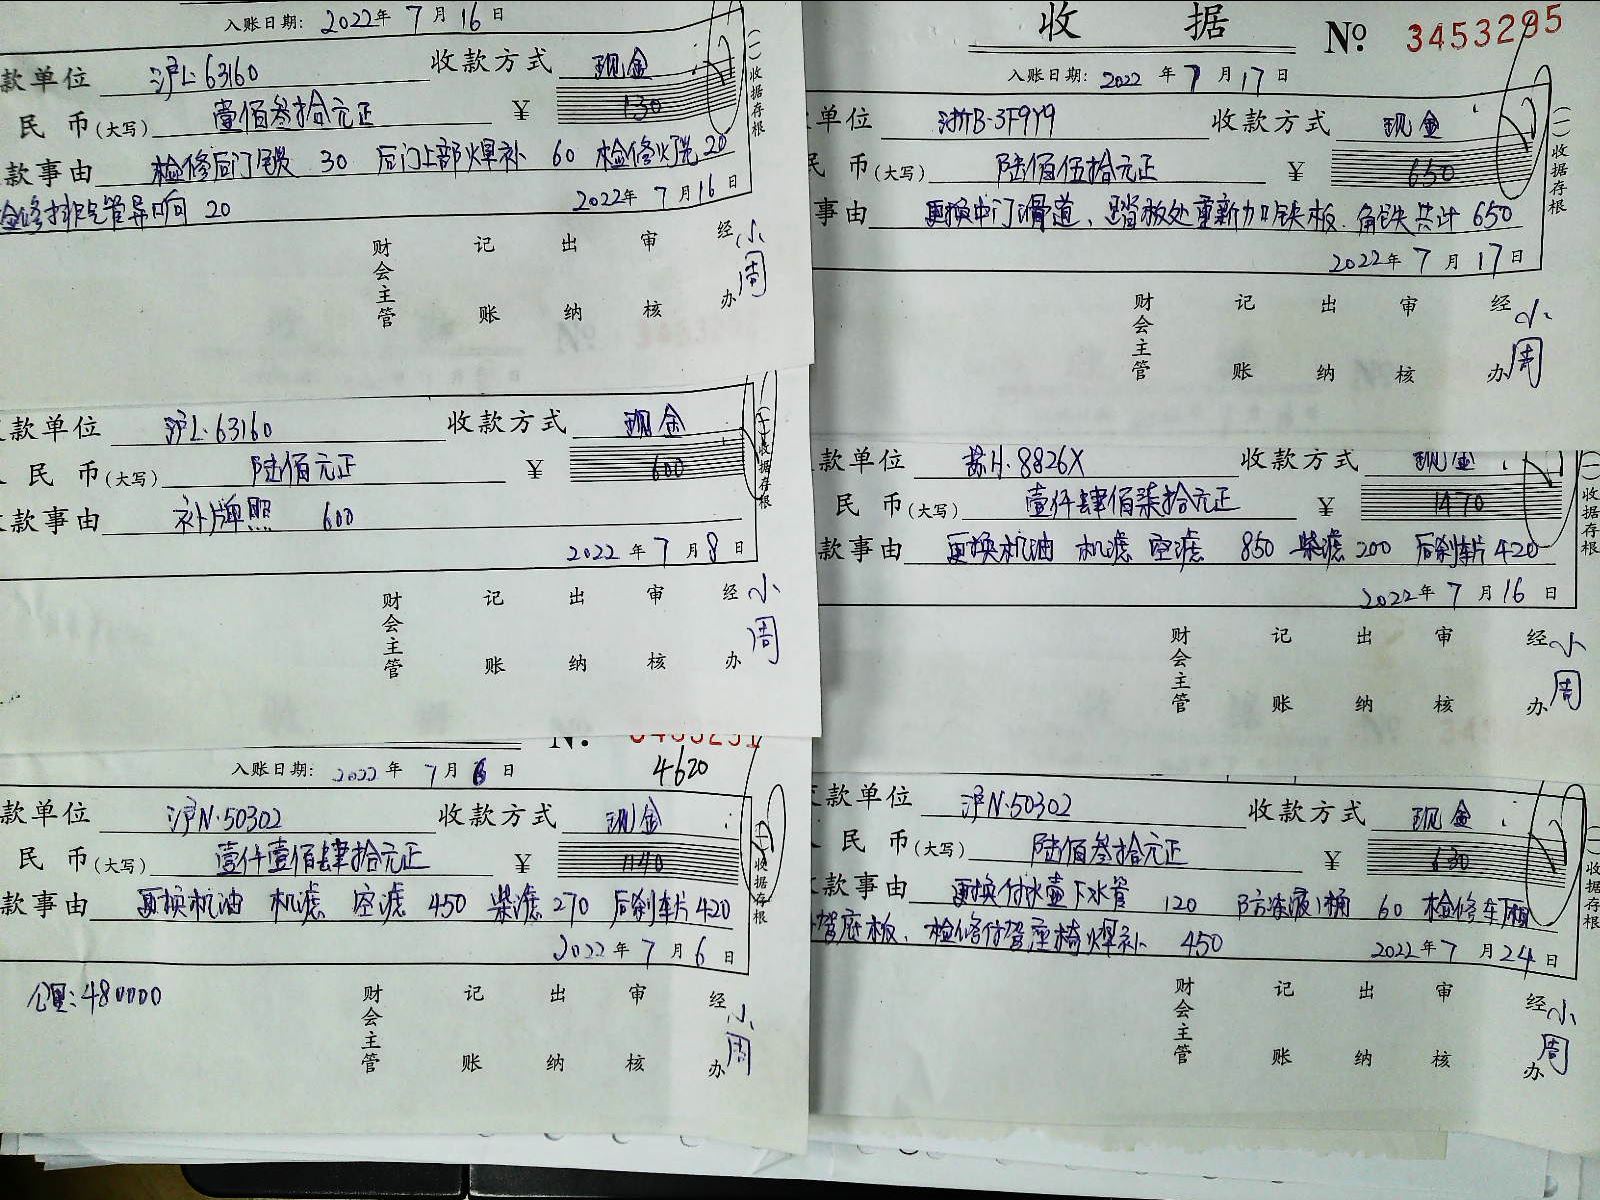 入账日期: 2022年 7月 16日
款单位 沪L·63160 收款方式 现金
民 币(大写) 壹佰叁拾元正 ¥ 130
款事由 检修后门锁 30 后门上部焊补 60 检修灯光 20
检修排气管异响 20
2022年 7月 16日
(一)收据存根
财会主管 记账 出纳 审核 经办 小周
款单位 沪L·63160 收款方式 现金
民 币(大写) 陆佰元正 ¥ 600
款事由 补牌照 600
2022年 7月 8日
(一)收据存根
财会主管 记账 出纳 审核 经办 小周
No. 3453291
入账日期: 2022年 7月 6日 4620
款单位 沪N·50302 收款方式 现金
民 币(大写) 壹仟壹佰肆拾元正 ¥ 1140
款事由 更换机油 机滤 空滤 450 柴滤 270 后刹车片 420
2022年 7月 6日
(一)收据存根
公里:480000
财会主管 记账 出纳 审核 经办 小周
收 据 No 3453295
入账日期: 2022年 7月 17日
单位 浙B·3F9Y9 收款方式 现金
民 币(大写) 陆佰伍拾元正 ¥ 650
事由 更换中门滑道、踏板处重新加口铁板、角铁共计 650
2022年 7月 17日
(一)收据存根
财会主管 记账 出纳 审核 经办 小周
款单位 苏H·8826X 收款方式 现金
民 币(大写) 壹仟肆佰柒拾元正 ¥ 1470
款事由 更换机油 机滤 空滤 850 柴滤 200 后刹车片 420
2022年 7月 16日
(一)收据存根
财会主管 记账 出纳 审核 经办 小周
款单位 沪N·50302 收款方式 现金
民 币(大写) 陆佰叁拾元正 ¥ 630
款事由 更换付水壶下水管 120 防冻液1桶 60 检修车厢
驾底板、检修付驾座椅焊补 450
2022年 7月 24日
(一)收据存根
财会主管 记账 出纳 审核 经办 小周